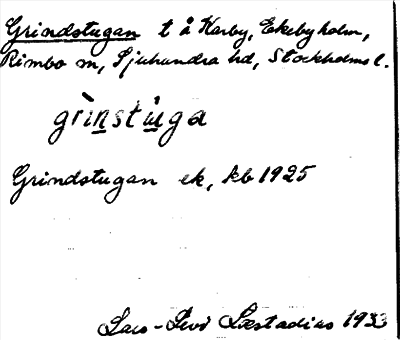 Grindstugan t å Karby, Ekebyholm,
Rimbo sn, Sjuhundra hd, Stockholms l.
grìnstùga
Grindstugan ek, kb 1925
Lars-Levi Læstadius 1933